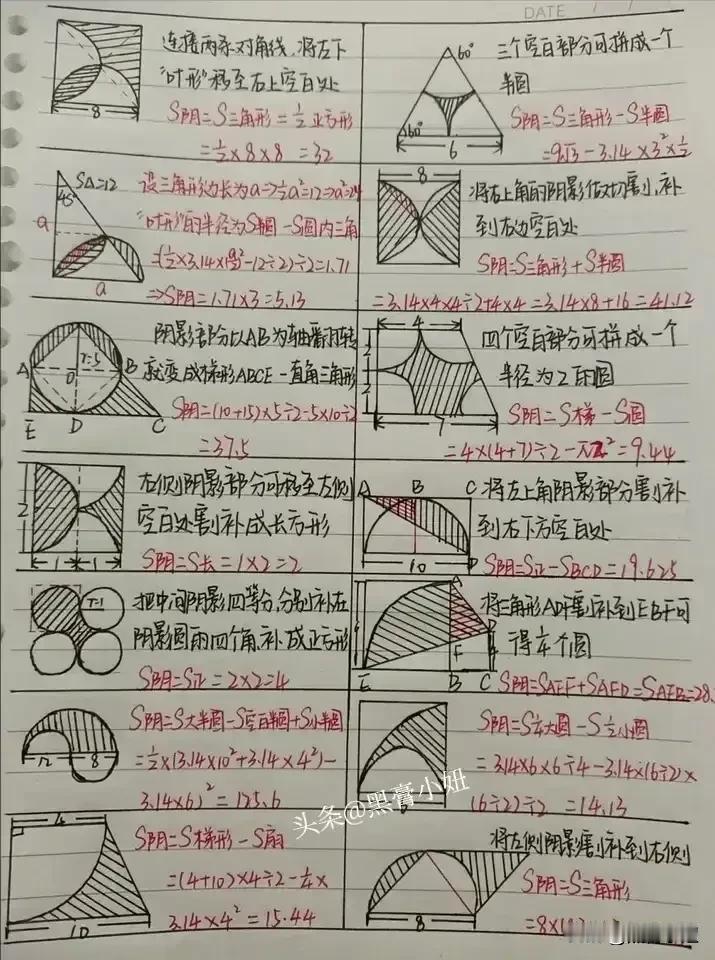 DATE
连接两条对角线,将左下
"叶形"移至右上空白处
S阴=S三角形=½正方形
=½×8×8 =32
8
三个空白部分可拼成一个
半圆
S阴=S三角形-S半圆
=9√3-3.14×3²×½
60°
60°
6
S△=12
45°
a
a
设三角形边长为a⇒½a²=12⇒a²=24
"叶形"的半径为S半圆-S圆内三角
-12÷2)÷2=1.71
⇒S阴=1.71×3=5.13
8
将右上角的阴影做切割,补
到右边空白处
S阴=S三角形+S半圆
=3.14×4×4÷2+4×4=3.14×8+16=41.12
阴影部分以AB为轴翻转
就变成梯形ABCE-直角三角形
S阴=(10+15)×5÷2-5×10÷2
=37.5
A
O
r=5
B
E
D
C
4
2
2
7
四个空白部分可拼成一个
半径为2的圆
S阴=S梯-S圆
=4×(4+7)÷2-π2²=9.44
2
1
1
右侧阴影部分可移至左侧
空白处割补成长方形
S阴=S长=1×2=2
A
B
C
D
10
将左上角阴影部分割补
到右下方空白处
S阴=S正-SBCD=19.625
r=1
把中间阴影四等分,分别补在
阴影圆的四个角,补成正方形
S阴=S正=2×2=4
A
D
F
E
B
C
将三角形ADF割补到EBF可
得¼个圆
S阴=SAEF+SAFD=SAEB=28.
12
8
S阴=S大半圆-S空白半圆+S小半圆
=½×(3.14×10²+3.14×4²)-
3.14×6)²=125.6
S阴=S¼大圆-S½小圆
=3.14×6×6÷4-3.14×(6÷2)×
(6÷2)÷2 =14.13
4
10
S阴=S梯形-S扇
=(4+10)×4÷2-¼×
3.14×4²=15.44
8
将左侧阴影割补到右侧
S阴=S三角形
=8×(8
头条@黑膏小妞